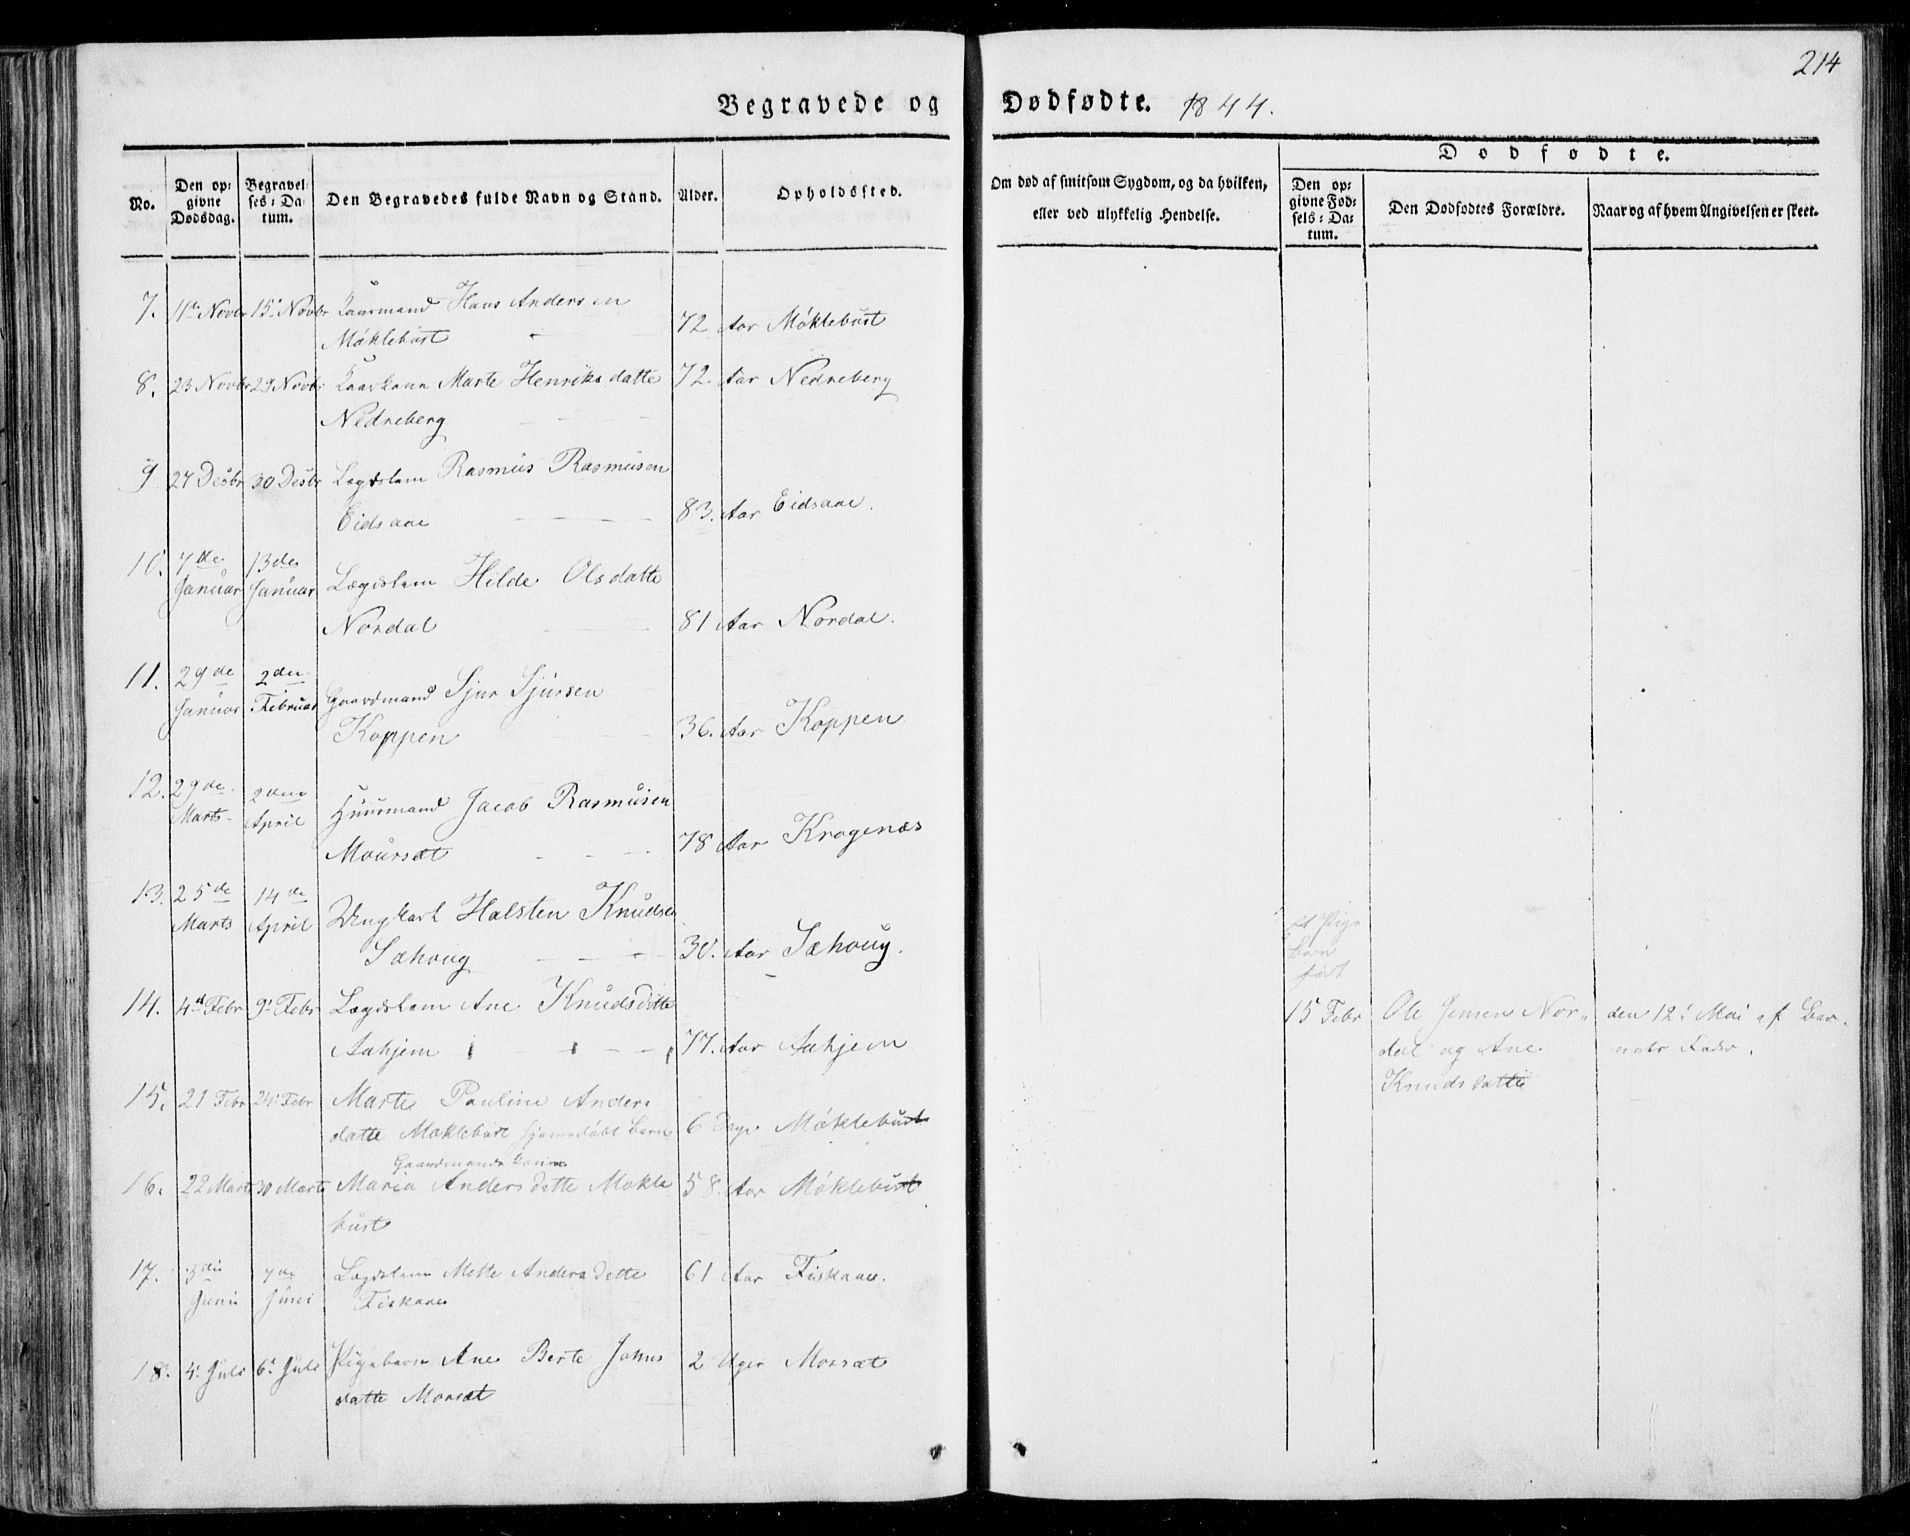 214
Begravede og Dødfødte. 1844.
No.
Den op-
givne
Dødsdag.
Begravel-
ses-Da-
tum.
Den Begravedes fulde Navn og Stand.
Alder.
Opholdssted.
Om død af smitsom Sygdom, og da hvilken,
eller ved ulykkelig Hendelse.
Dødfødte.
Den op-
givne Fød-
sels-Da-
tum.
Den Dødfødtes Forældre.
Naar og af hvem Angivelsen er skeet.
7. 11te Novbr 15. Novbr Kaarmand Hans Andersen
Møklebust - 72 Aar Møklebust
8. 23 Novbr 29 Novbr Kaarkone Marte Henriksdatte 72 Aar Nedreberg
Nedreberg - - -
9 27 Desbr 30 Desbr Lægdslem Rasmus Rasmusen
Eidsaae - - - 83. Aar Eidsaae.
10. 7de 13de
Januar Januar Lægdslem Hilde Olsdatte
Nordal - - 81 Aar Nordal.
11. 29de 2den
Januar Februar Gaardmand Sjur Sjursen
Koppen - - 36. Aar Koppen
12. 29de 2den
Marts April Huusmand Jacob Rasmusen
Moursæt - - - 78 Aar Krogenæs
13. 25de 14de
Marts April Ungkarl Halsten Knudsen
Sæhoug - - - 30. Aar Sæhoug.
et Pige
barn
født
14. 4d Febr 9. Febr Lægdslem Ane Knudsdatte
Aahjem - - - 77. Aar Aahjem
15 Febr Ole Jensen Nor-
dal og Ane
Knudsdatte
den 12. Mai af Bar-
nets Fader.
15. 21 Febr 24. Febr Marte Pauline Anders
datte Møklebust hjemmedøbt Barn 6 Dage Møklebust
Gaardmandskone
16. 22 Mart 30 Marts Maria Andersdatte Møkle 58. Aar Møklebust
bust
17. 3die 7de Lægdslem Mette Andersdatte 61 Aar Fiskaae.
Juni Juni Fiskaae
18. 4. Juli 6. Juli Pigebarn Ane Berte Johns 2 Uger Morsæt
datte Morsæt